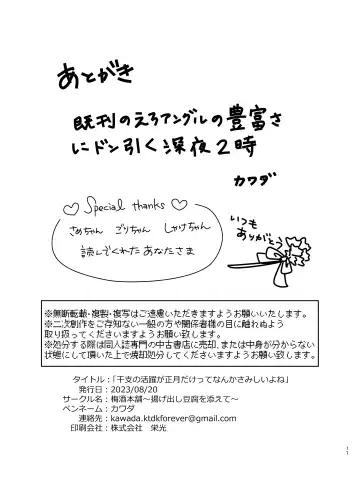 あとがき
既刊のえろアングルの豊富さ
にドン引く深夜2時
カワダ
Special thanks
さめちゃん ごりちゃん しかけちゃん
読んでくれたあなたさま
いつも
ありがとう
※無断転載・複製・複写はご遠慮いただきますようお願いいたします。
※二次創作をご存知ない一般の方や関係者様の目に触れぬよう
取り扱ってくださいますようお願い致します。
※処分する際は同人誌専門の中古書店に売却、または中身が分からない
状態にして頂いた上で焼却処分してくださいますようお願い致します。
タイトル：「干支の活躍が正月だけってなんかさみしいよね」
発行日：2023/08/20
サークル名：梅酒本舗～揚げ出し豆腐を添えて～
ペンネーム：カワダ
連絡先：kawada.ktdkforever@gmail.com
印刷会社：株式会社　栄光